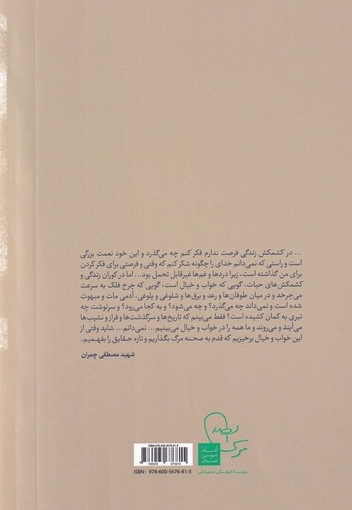 ... در کشمکش زندگی فرصت ندارم فکر کنم چه می‌گذرد و این خود نعمت بزرگی
است و راستی که نمی‌دانم خدای را چگونه شکر کنم که وقتی و فرصتی برای فکر کردن
برای من گذاشته است، زیرا دردها و غم‌ها غیرقابل تحمل بود... اما در کوران زندگی و
کشمکش‌های حیات، گویی که خواب و خیال است، گویی که چرخ فلک به سرعت
می‌چرخد و در میان طوفان‌ها و رعد و برق‌ها و شلوغی و پلوغی، آدمی مات و مبهوت
شده است و نمی‌داند چه می‌گذرد؟ و چه می‌شود؟ و به کجا می‌رود؟ و سرنوشت چه
تیری به کمان کشیده است؟ فقط می‌بینم که تاریخ‌ها و سرگذشت‌ها و فراز و نشیب‌ها
می‌آیند و می‌روند و ما همه را در خواب و خیال می‌بینیم... نمی‌دانم... شاید وقتی از
این خواب و خیال برخیزیم که قدم به صحنه مرگ بگذاریم و تازه حقایق را بفهمیم.
شهید مصطفی چمران
ISBN : 978-600-5676-81-5